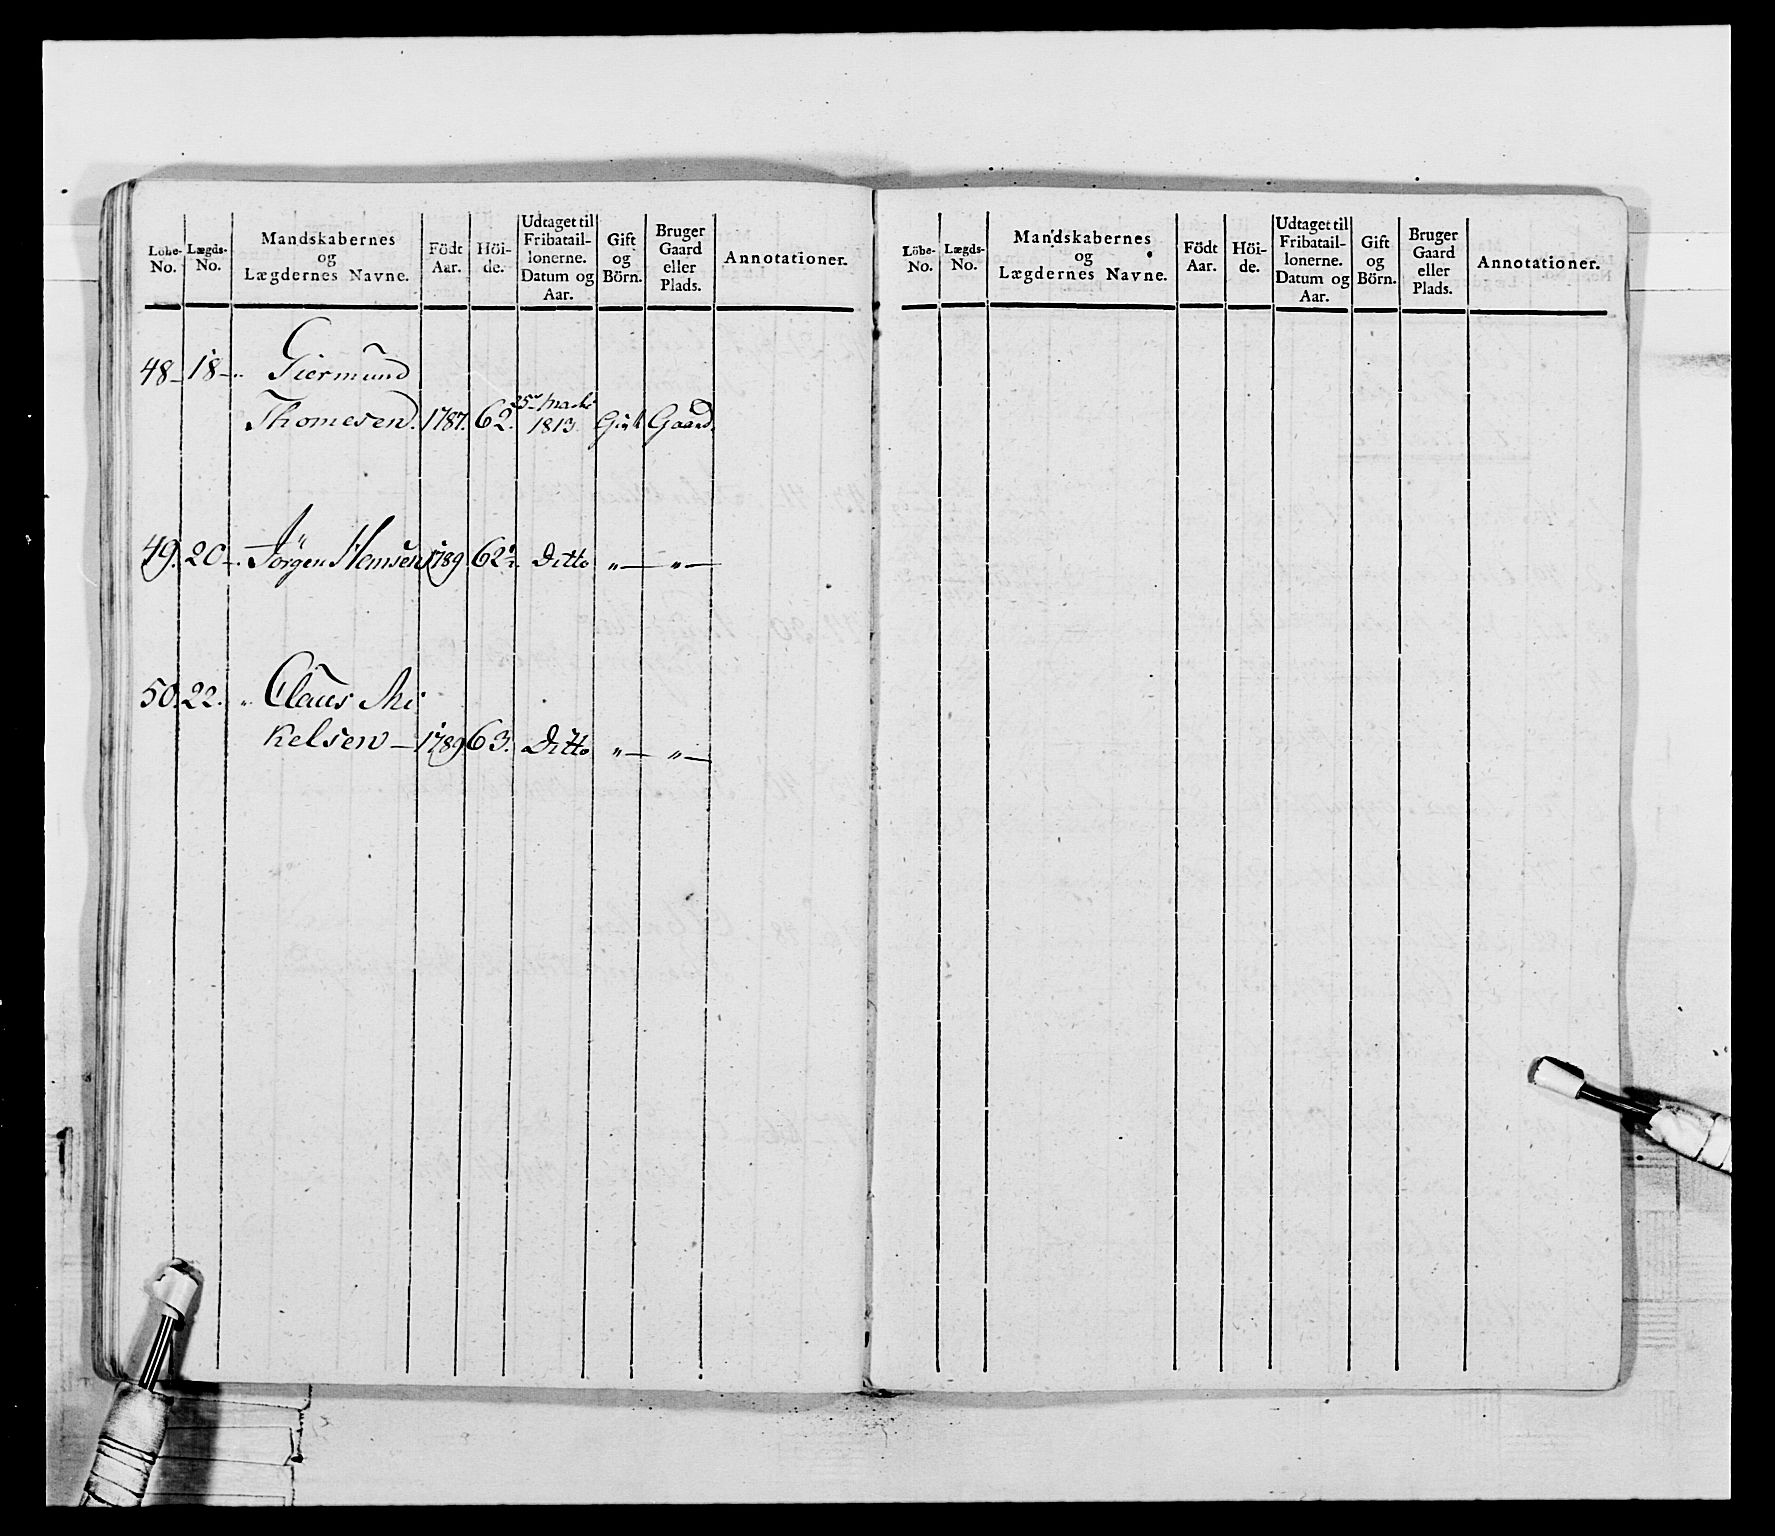 Löbe-No. Lægds-No. Mandskabernes og Lægdernes Navne. Födt Aar. Höi-de. Udtaget til Fribatail-lonerne. Datum og Aar. Gift og Börn. Bruger Gaard eller Plads. Annotationer.
48 18 " Giermund
Thomesen. 1787. 62. 25de Marti 1813. Gift Gaard.
49. 20 " Jörgen Hemsen 1789 62½. Ditto "— "—
50. 22. " Claus Mi
kelsen — 1789 63. Ditto "— "—
Löbe-No. Lægds-No. Mandskabernes og Lægdernes Navne. Födt Aar. Höi-de. Udtaget til Fribatail-lonerne. Datum og Aar. Gift og Börn. Bruger Gaard eller Plads. Annotationer.